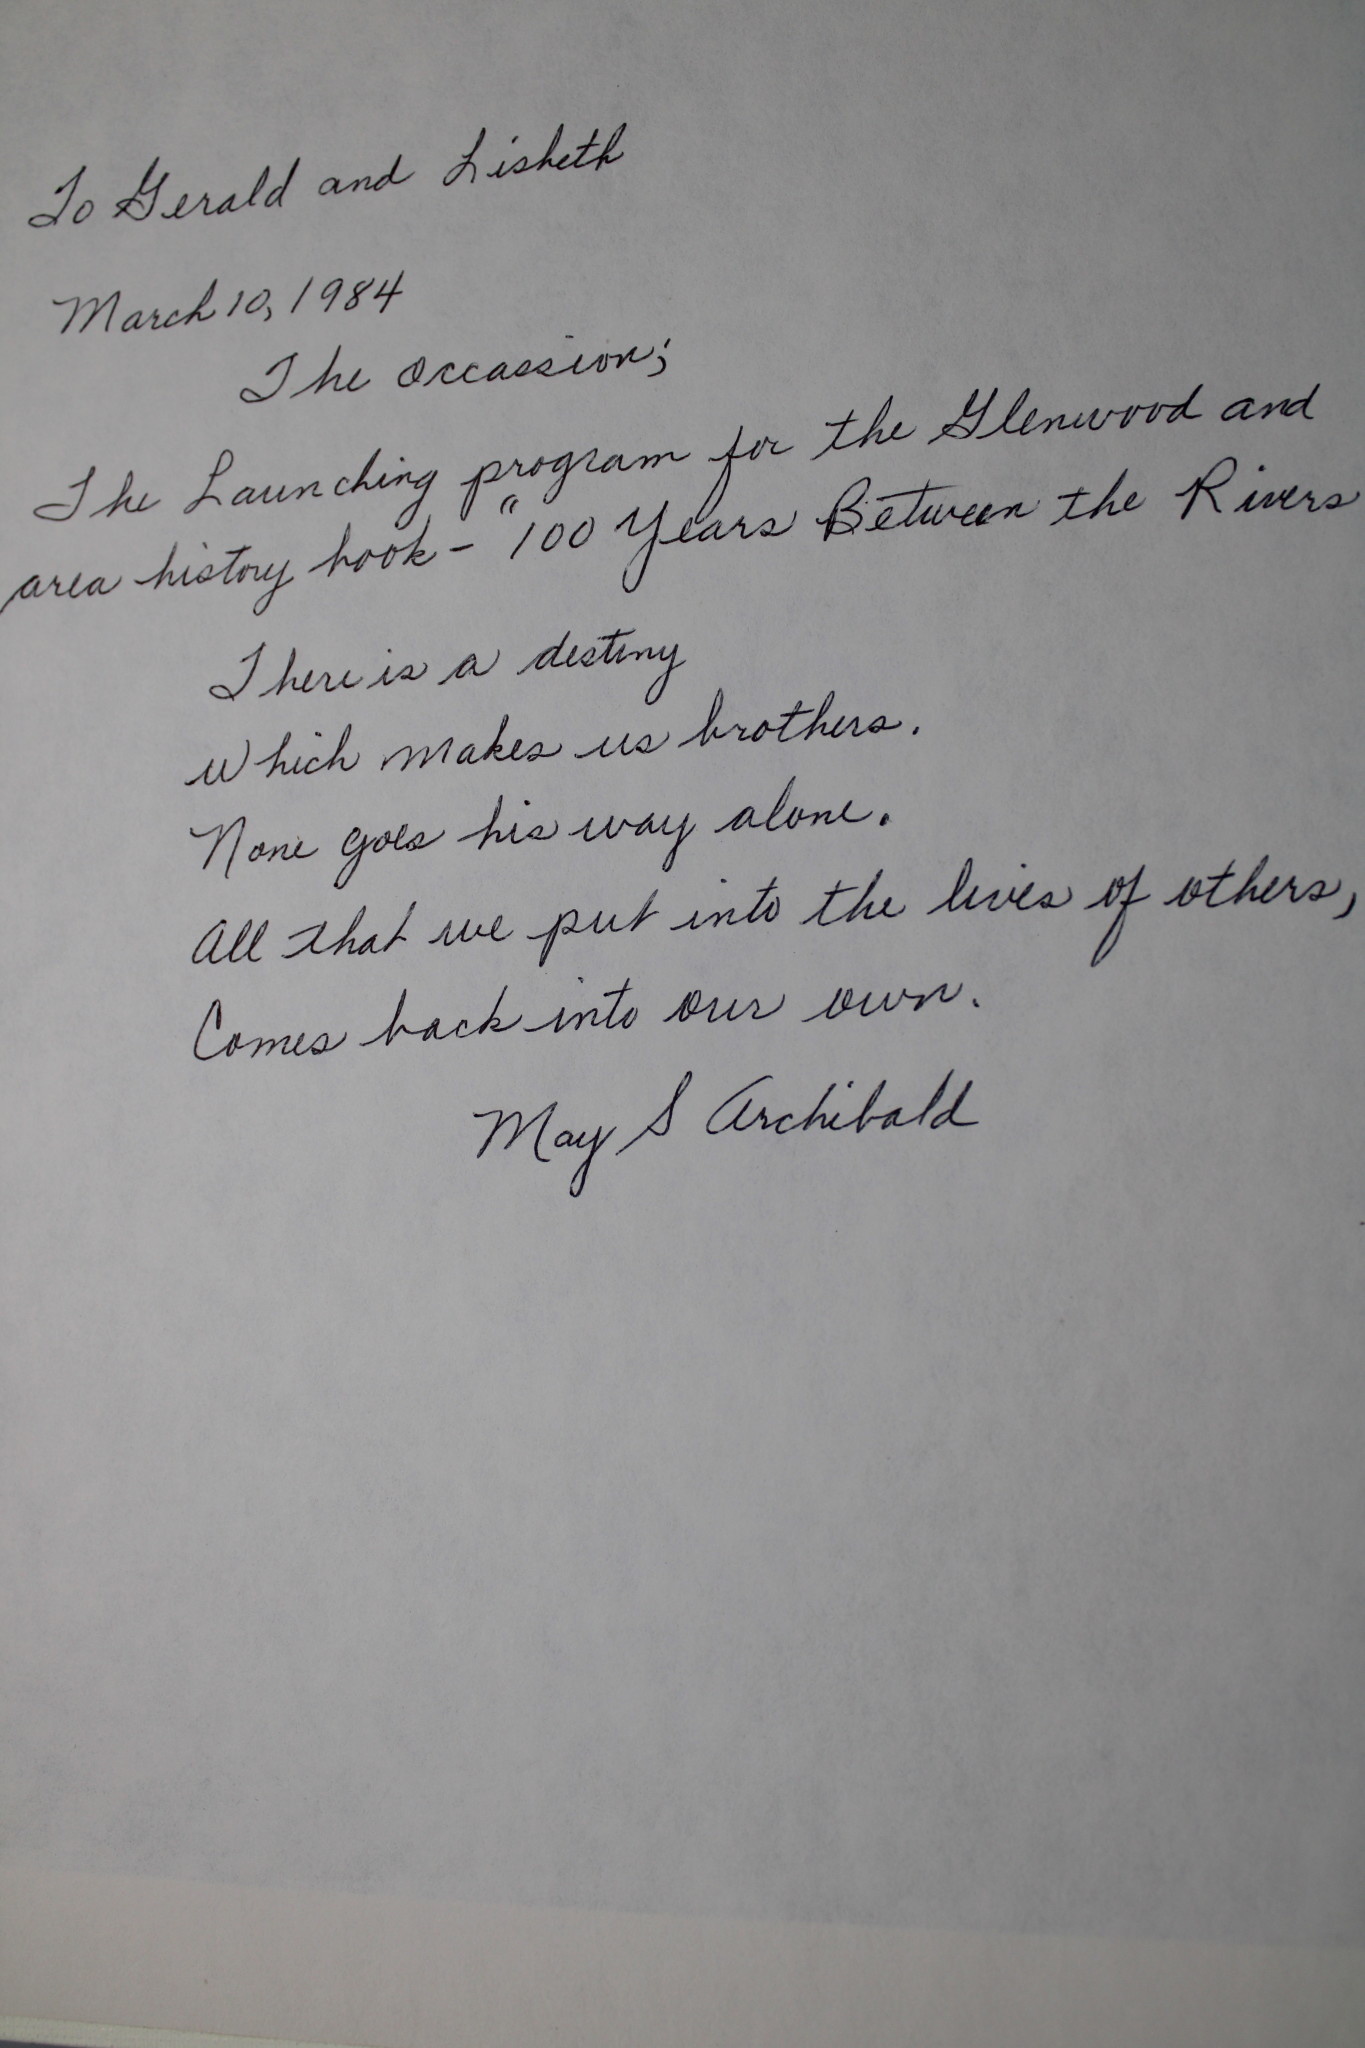 To Gerald and Lisbeth
March 10, 1984
The Occassion;
The Launching program for the Glenwood and
area history book - "100 Years Between the Rivers
There is a destiny
which makes us brothers.
None goes his way alone.
All that we put into the lives of others,
Comes back into our own.
May S Archibald